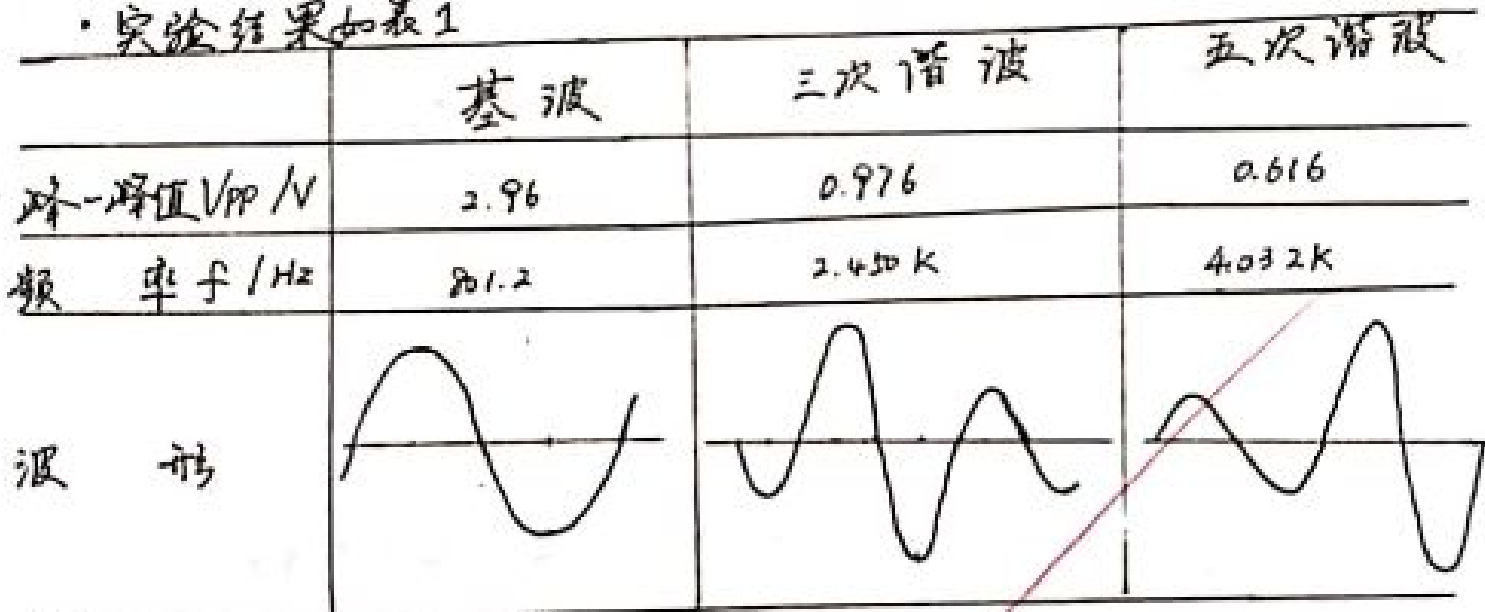 ·实验结果如表1
基波 三次谐波 五次谐波
峰-峰值VPP/V 2.96 0.976 0.616
频 率 f/Hz 801.2 2.450K 4.032K
波 形